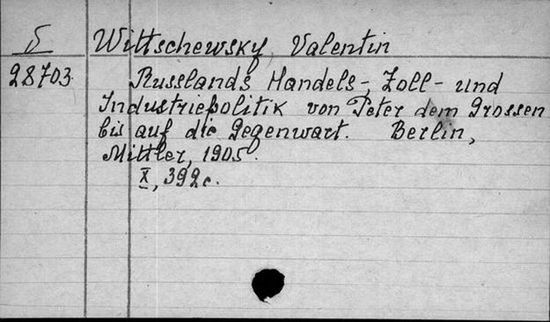 V
Wittschewsky, Valentin
28703.
Russlands Handels-, Zoll- und
Industriepolitik von Peter dem Grossen
bis auf die Gegenwart. Berlin,
Mittler, 1905.
X, 392 c.